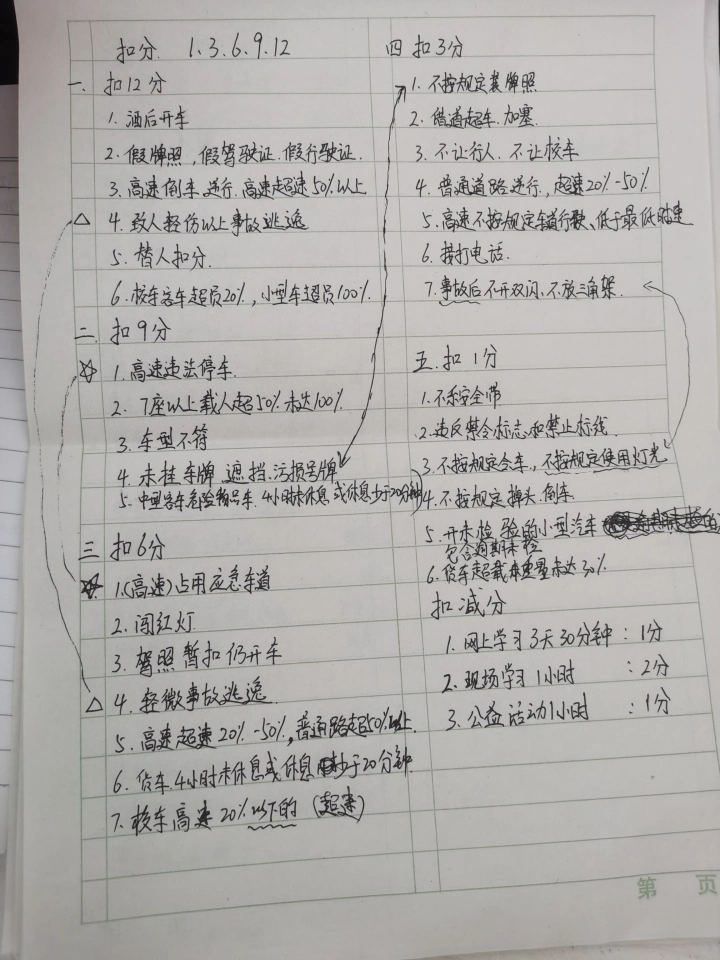 扣分 1.3.6.9.12
一、扣12分
1. 酒后开车
2. 假牌照，假驾驶证.假行驶证.
3. 高速倒车.逆行.高速超速50%以上
△ 4. 致人轻伤以上事故逃逸
5. 替人扣分.
6. 校车客车超员20%，小型车超员100%.
二、扣9分
☆ 1. 高速违法停车.
2. 7座以上载人超50%未达100%
3. 车型不符
4. 未挂车牌.遮挡.污损号牌
5. 中型客车危险物品车.4小时未休息或休息少于20分钟
三 扣6分
☆ 1.(高速)占用应急车道
2. 闯红灯
3. 驾照暂扣仍开车
△ 4. 轻微事故逃逸.
5. 高速超速20%-50%，普通路超50%以上.
6. 货车4小时未休息或休息少于20分钟.
7. 校车高速20%以下的(超速)
四 扣3分
1. 不按规定装牌照
2. 借道超车.加塞.
3. 不让行人.不让校车
4. 普通道路逆行，超速20%-50%
5. 高速不按规定车道行驶、低于最低时速
6. 拨打电话.
7. 事故后不开双闪.不放三角架.
五.扣1分
1. 不系安全带
2. 违反禁令标志和禁止标线.
3. 不按规定会车，不按规定使用灯光
4. 不按规定掉头.倒车.
5. 开未检验的小型汽车
包含逾期未检
6. 货车超载未达30%.
扣减分
1. 网上学习3天30分钟：1分
2. 现场学习1小时：2分
3. 公益活动1小时：1分
第 页